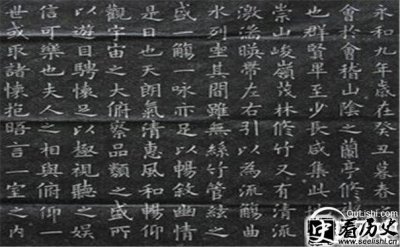 永和九年歳在癸丑暮春
會於會稽山陰之蘭亭修
也群賢畢至少長咸集此
崇山峻嶺茂林修竹又有清流
激湍暎帶左右引以為流觴曲
水列坐其間雖無絲竹管絃之
盛一觴一詠亦足以暢敘幽情
是日也天朗氣清惠風和暢仰
觀宇宙之大俯察品類之盛所
以遊目騁懷足以極視聽之娛
信可樂也夫人之相與俯仰一
世或取諸懷抱晤言一室之内
看历史
www.seelishi.com